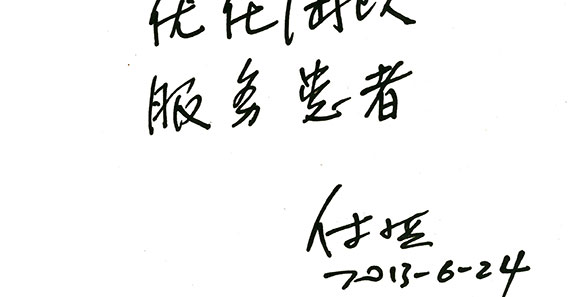 优化
服务患者
付
2013-6-24